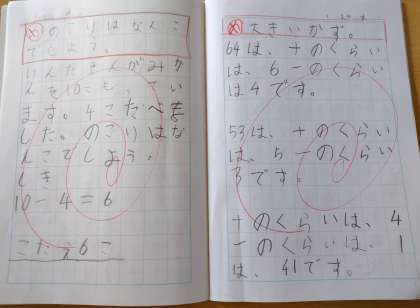 め のこりはなんこ
でしょう。
れを10こも
ます。4こたべま
した。のこりはな
んこでしょう。
しき
10-4=6
こたえ6こ
め 大きいかず。
64は、十のくらい
は、6一のくらい
は4です。
53は、十のくらい
は、5一のくらい
3です。
十のくらいは、4
一のくらいは、1
は、41です。